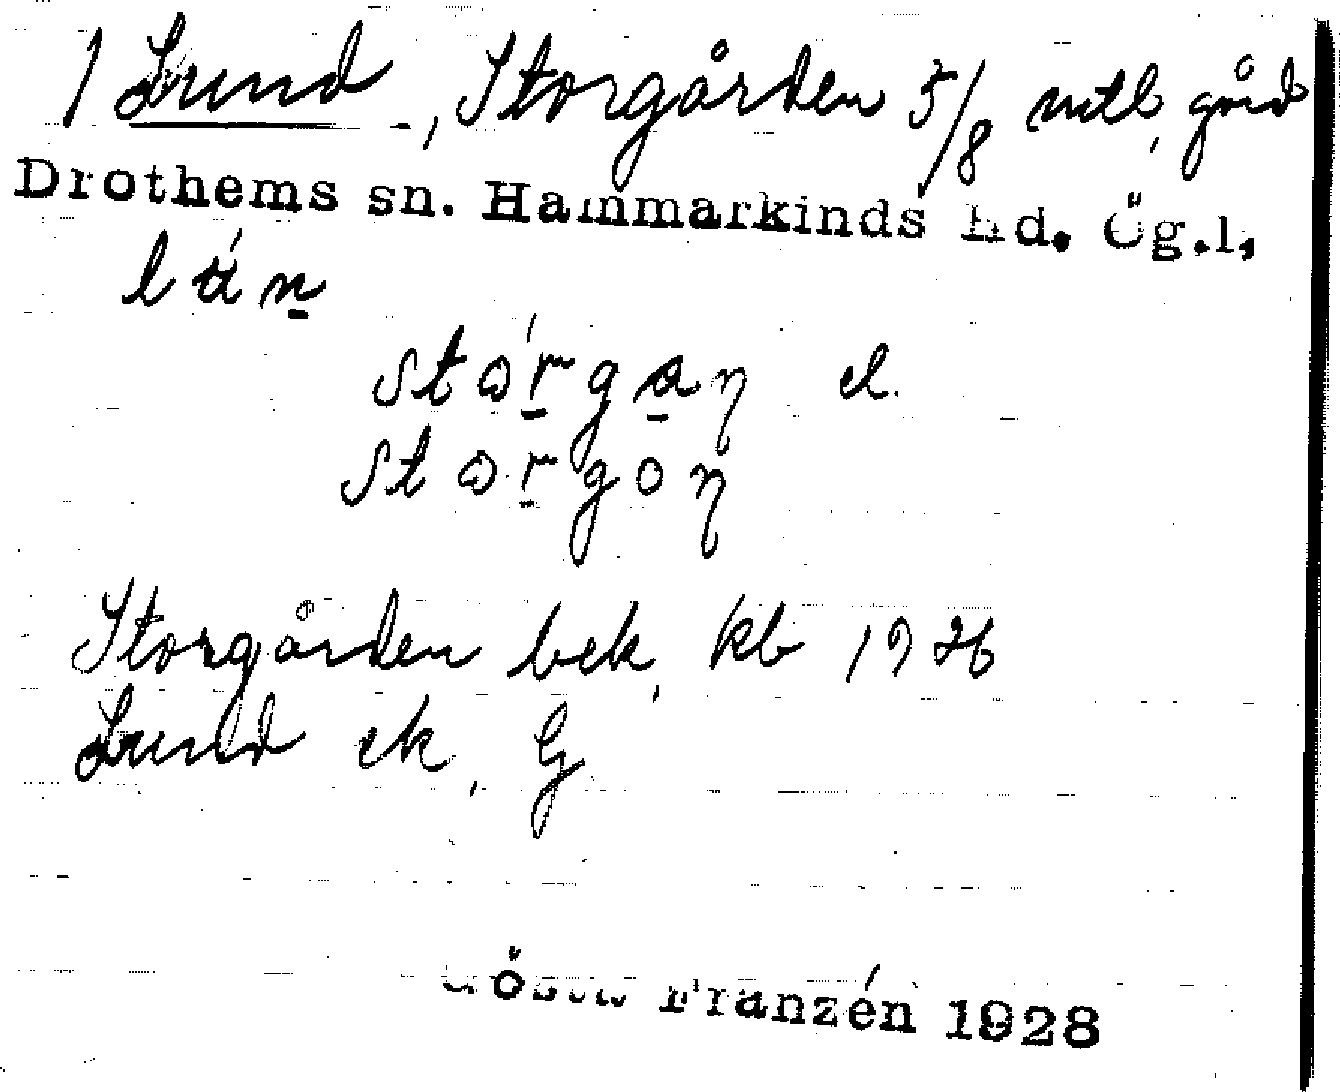 1 Lund, Storgården 5/8 mtl, gård
Drothems sn. Hammarkinds hd. Ög.l.
stórgaŋ el.
storgoŋ
Storgården bek, kb 1926
Lund ek, G
Gösta Franzén 1928